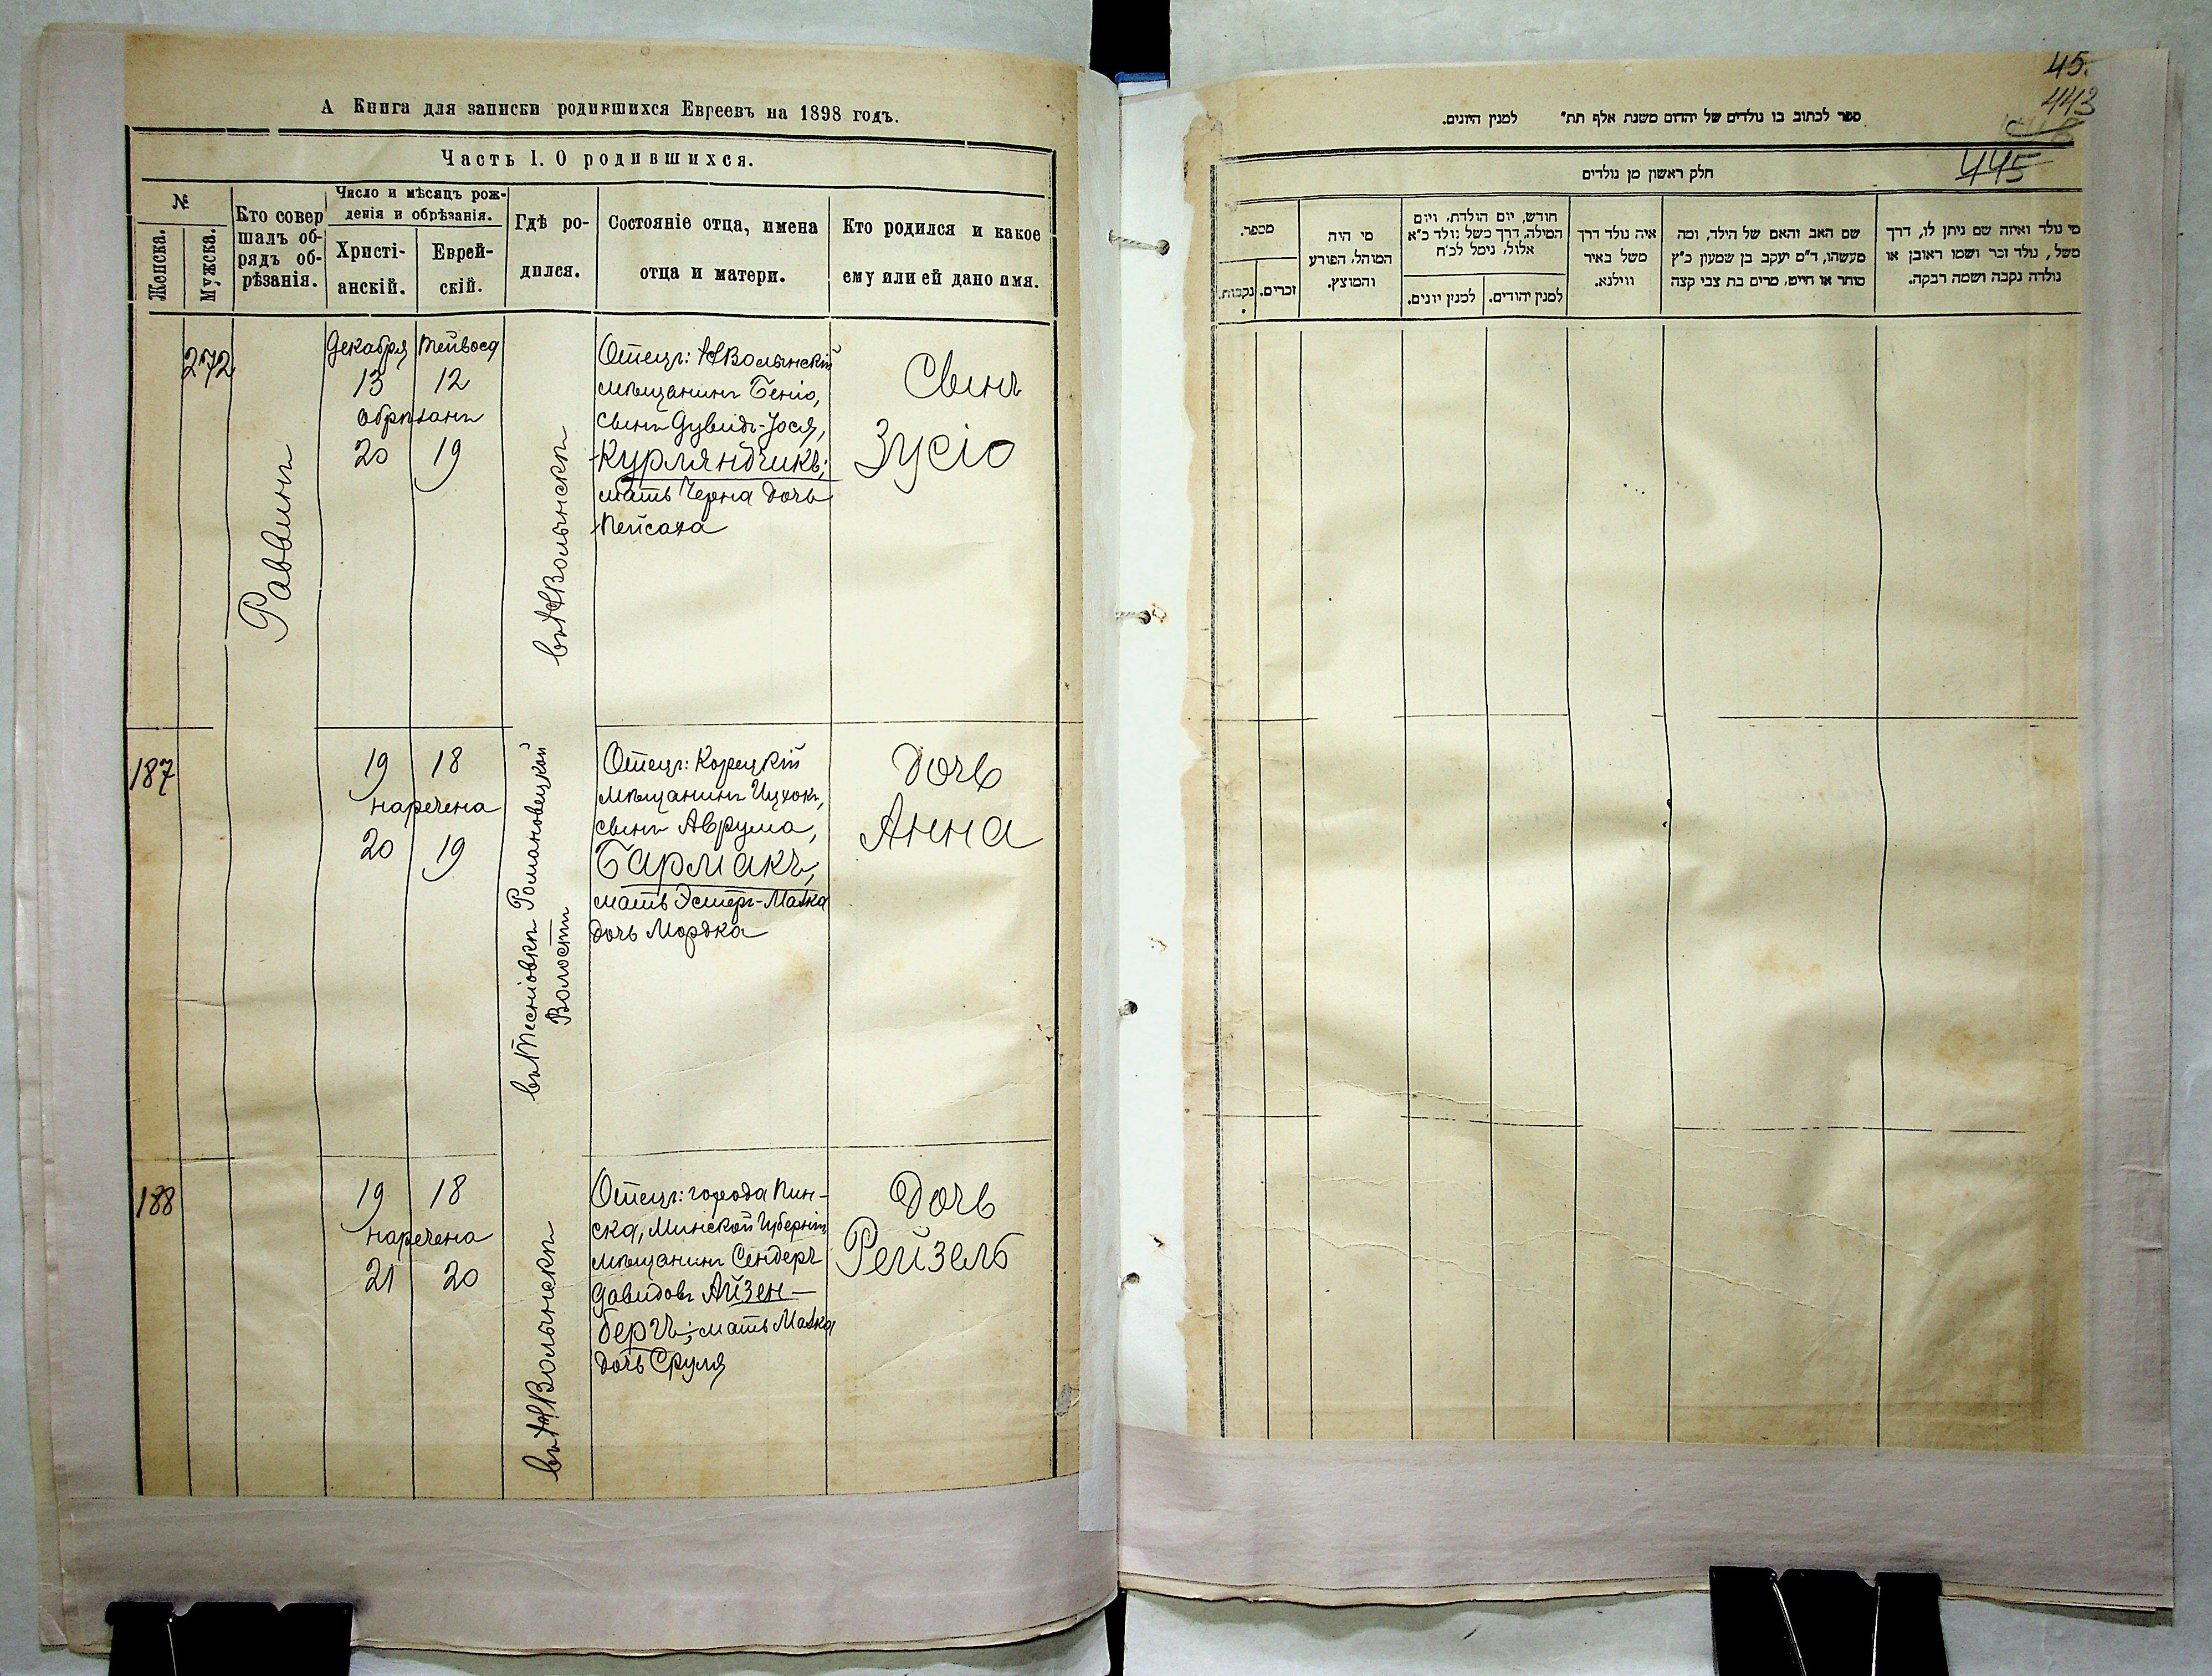 А Книга для записки родившихся Евреевъ на 1898 годъ.
Часть I. О родившихся.
№
Женска.
Мужска.
Кто совер
шалъ об-
рядъ об-
рѣзанія.
Число и мѣсяцъ рож-
денія и обрѣзанія.
Христі-
анскій.
Еврей-
скій.
Гдѣ ро-
дился.
Состояніе отца, имена
отца и матери.
Кто родился и какое
ему или ей дано имя.
272
Раввинъ
Декабря
13
обрѣзанъ
20
12
19
Отецъ: НВолынскій
мѣщанинъ Беніо,
сынъ Дувидъ-Іося,
Курляндчикъ;
мать Черна дочь
Пейсаха
Сынъ
Зусіо
187
19 18
наречена
20 19
Романовецкой
Волости
Отецъ: Корецкій
мѣщанинъ Ицхокъ,
сынъ Аврума,
Бармакъ,
мать Эстеръ-Малка
дочь Мордка
Дочь
Анна
188
19 18
наречена
21 20
въ НВолынскѣ
Отецъ: города Пин-
ска, Минской Губерніи
мѣщанинъ Сендеръ
Давидовъ Айзен-
бергъ; мать Малка
дочь Сруля
Дочь
Рейзель
45.
443
445
ספר לכתוב בו נולדים של יהדום משנת אלף תת״ למנין היונים.
חלק ראשון מן נולדים
מספר.
נקבות.
זכרים.
מי היה
המוהל, הפורע
והמוצץ.
חודש, יום הולדת, ויום
המילה, דרך משל נולד כ״א
אלול, נימל לכ״ח
למנין יונים.
למנין יהודים.
איה נולד דרך
משל באיר
ווילנא.
שם האב והאם של הילד, ומה
מעשהו, ד״מ יעקב בן שמעון כ״ץ
סוחר או חייט, מרים בת צבי קצה
מי נולד ואיזה שם ניתן לו, דרך
משל, נולד זכר ושמו ראובן או
נולדה נקבה ושמה רבקה.